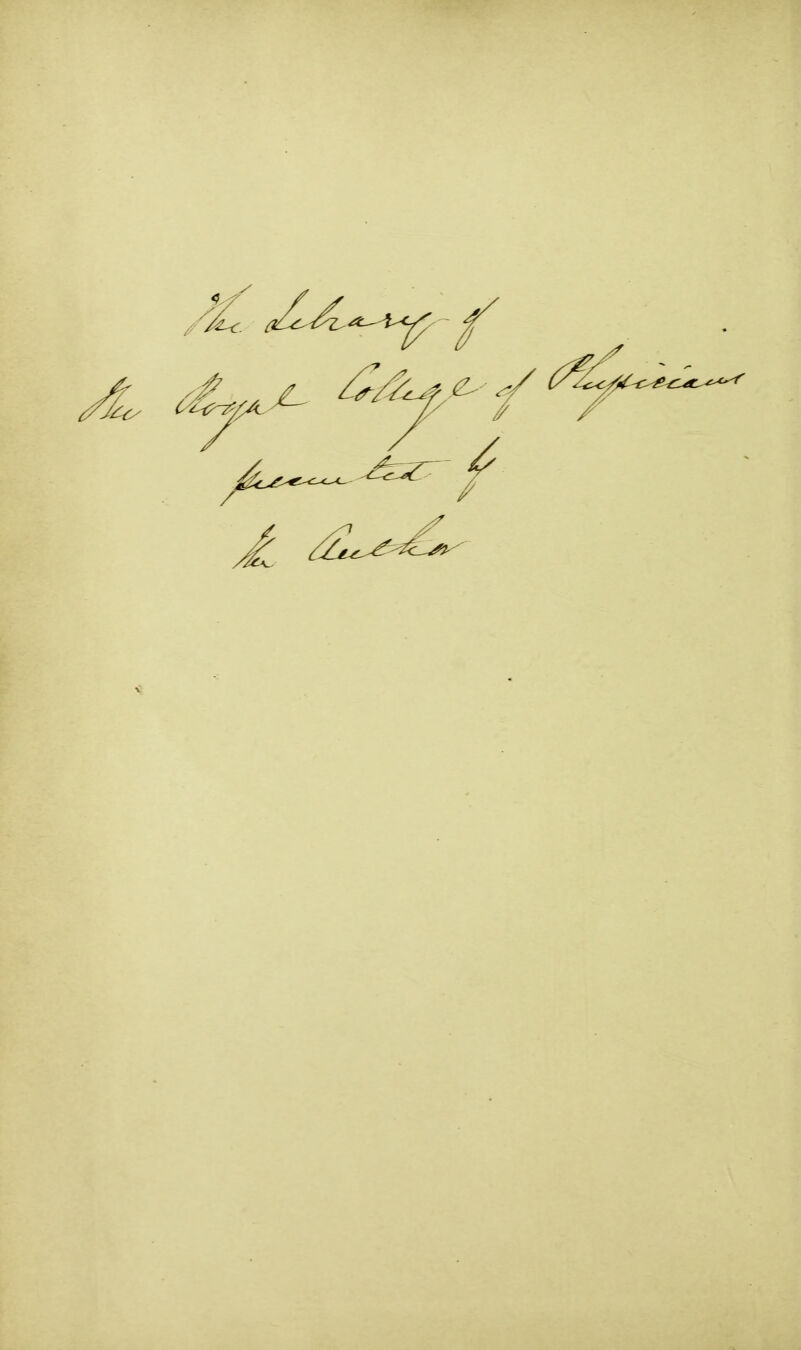 The Library of
the Royal College of Physicians
presented by
the Author